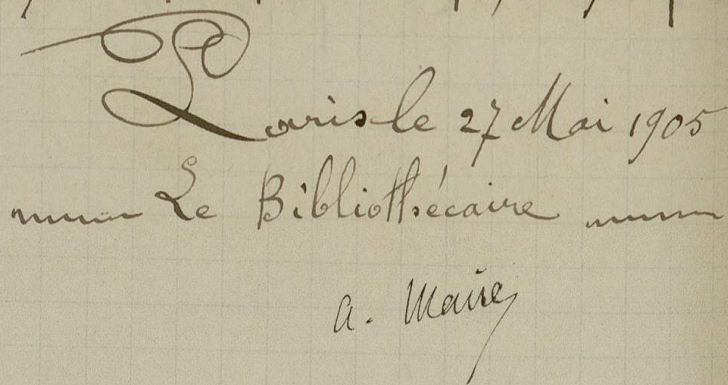 Paris le 27 Mai 1905
Le Bibliothécaire
A. Maire